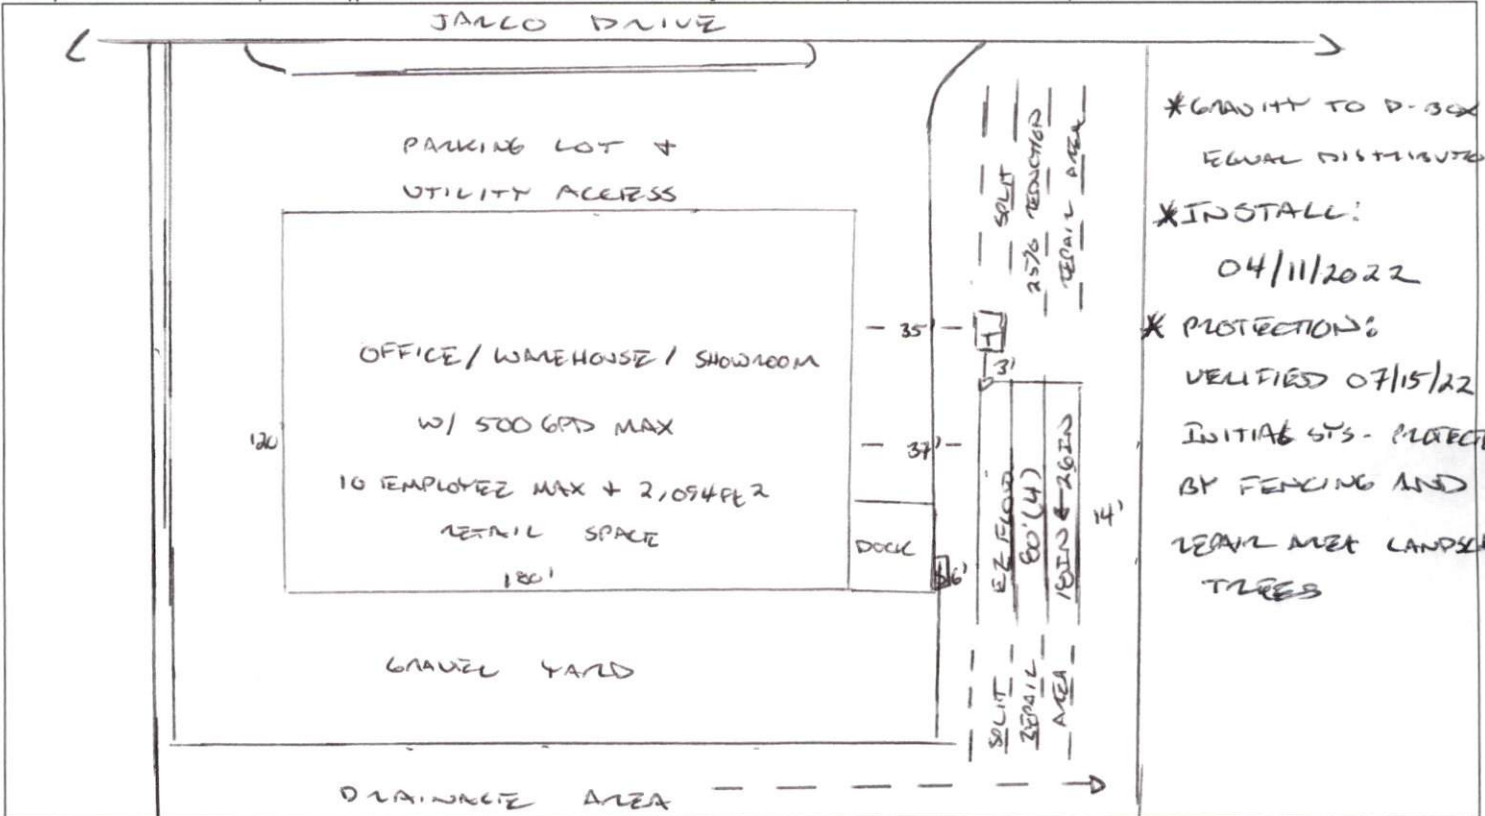 JARCO DRIVE
PARKING LOT +
UTILITY ACCESS
OFFICE/ WAREHOUSE / SHOWROOM
W/ 500 GPD MAX
10 EMPLOYEE MAX + 2,094 Ft2
RETAIL SPACE
120
180'
DOCK
GRAVEL YARD
DRAINAGE AREA
35'
37'
3'
6'
14'
SPLIT
25% REDUCTION
REPAIR AREA
T
EZ FLOW
80' (4)
18IN ← 26IN
SPLIT
REPAIR
AREA
*GRAVITY TO D-BOX
EQUAL DISTRIBUTIO
*INSTALL:
04/11/2022
* PROTECTION:
VERIFIED 07/15/22
INITIAL SYS. PROTECT
BY FENCING AND
REPAIR AREA LANDSC
TREES